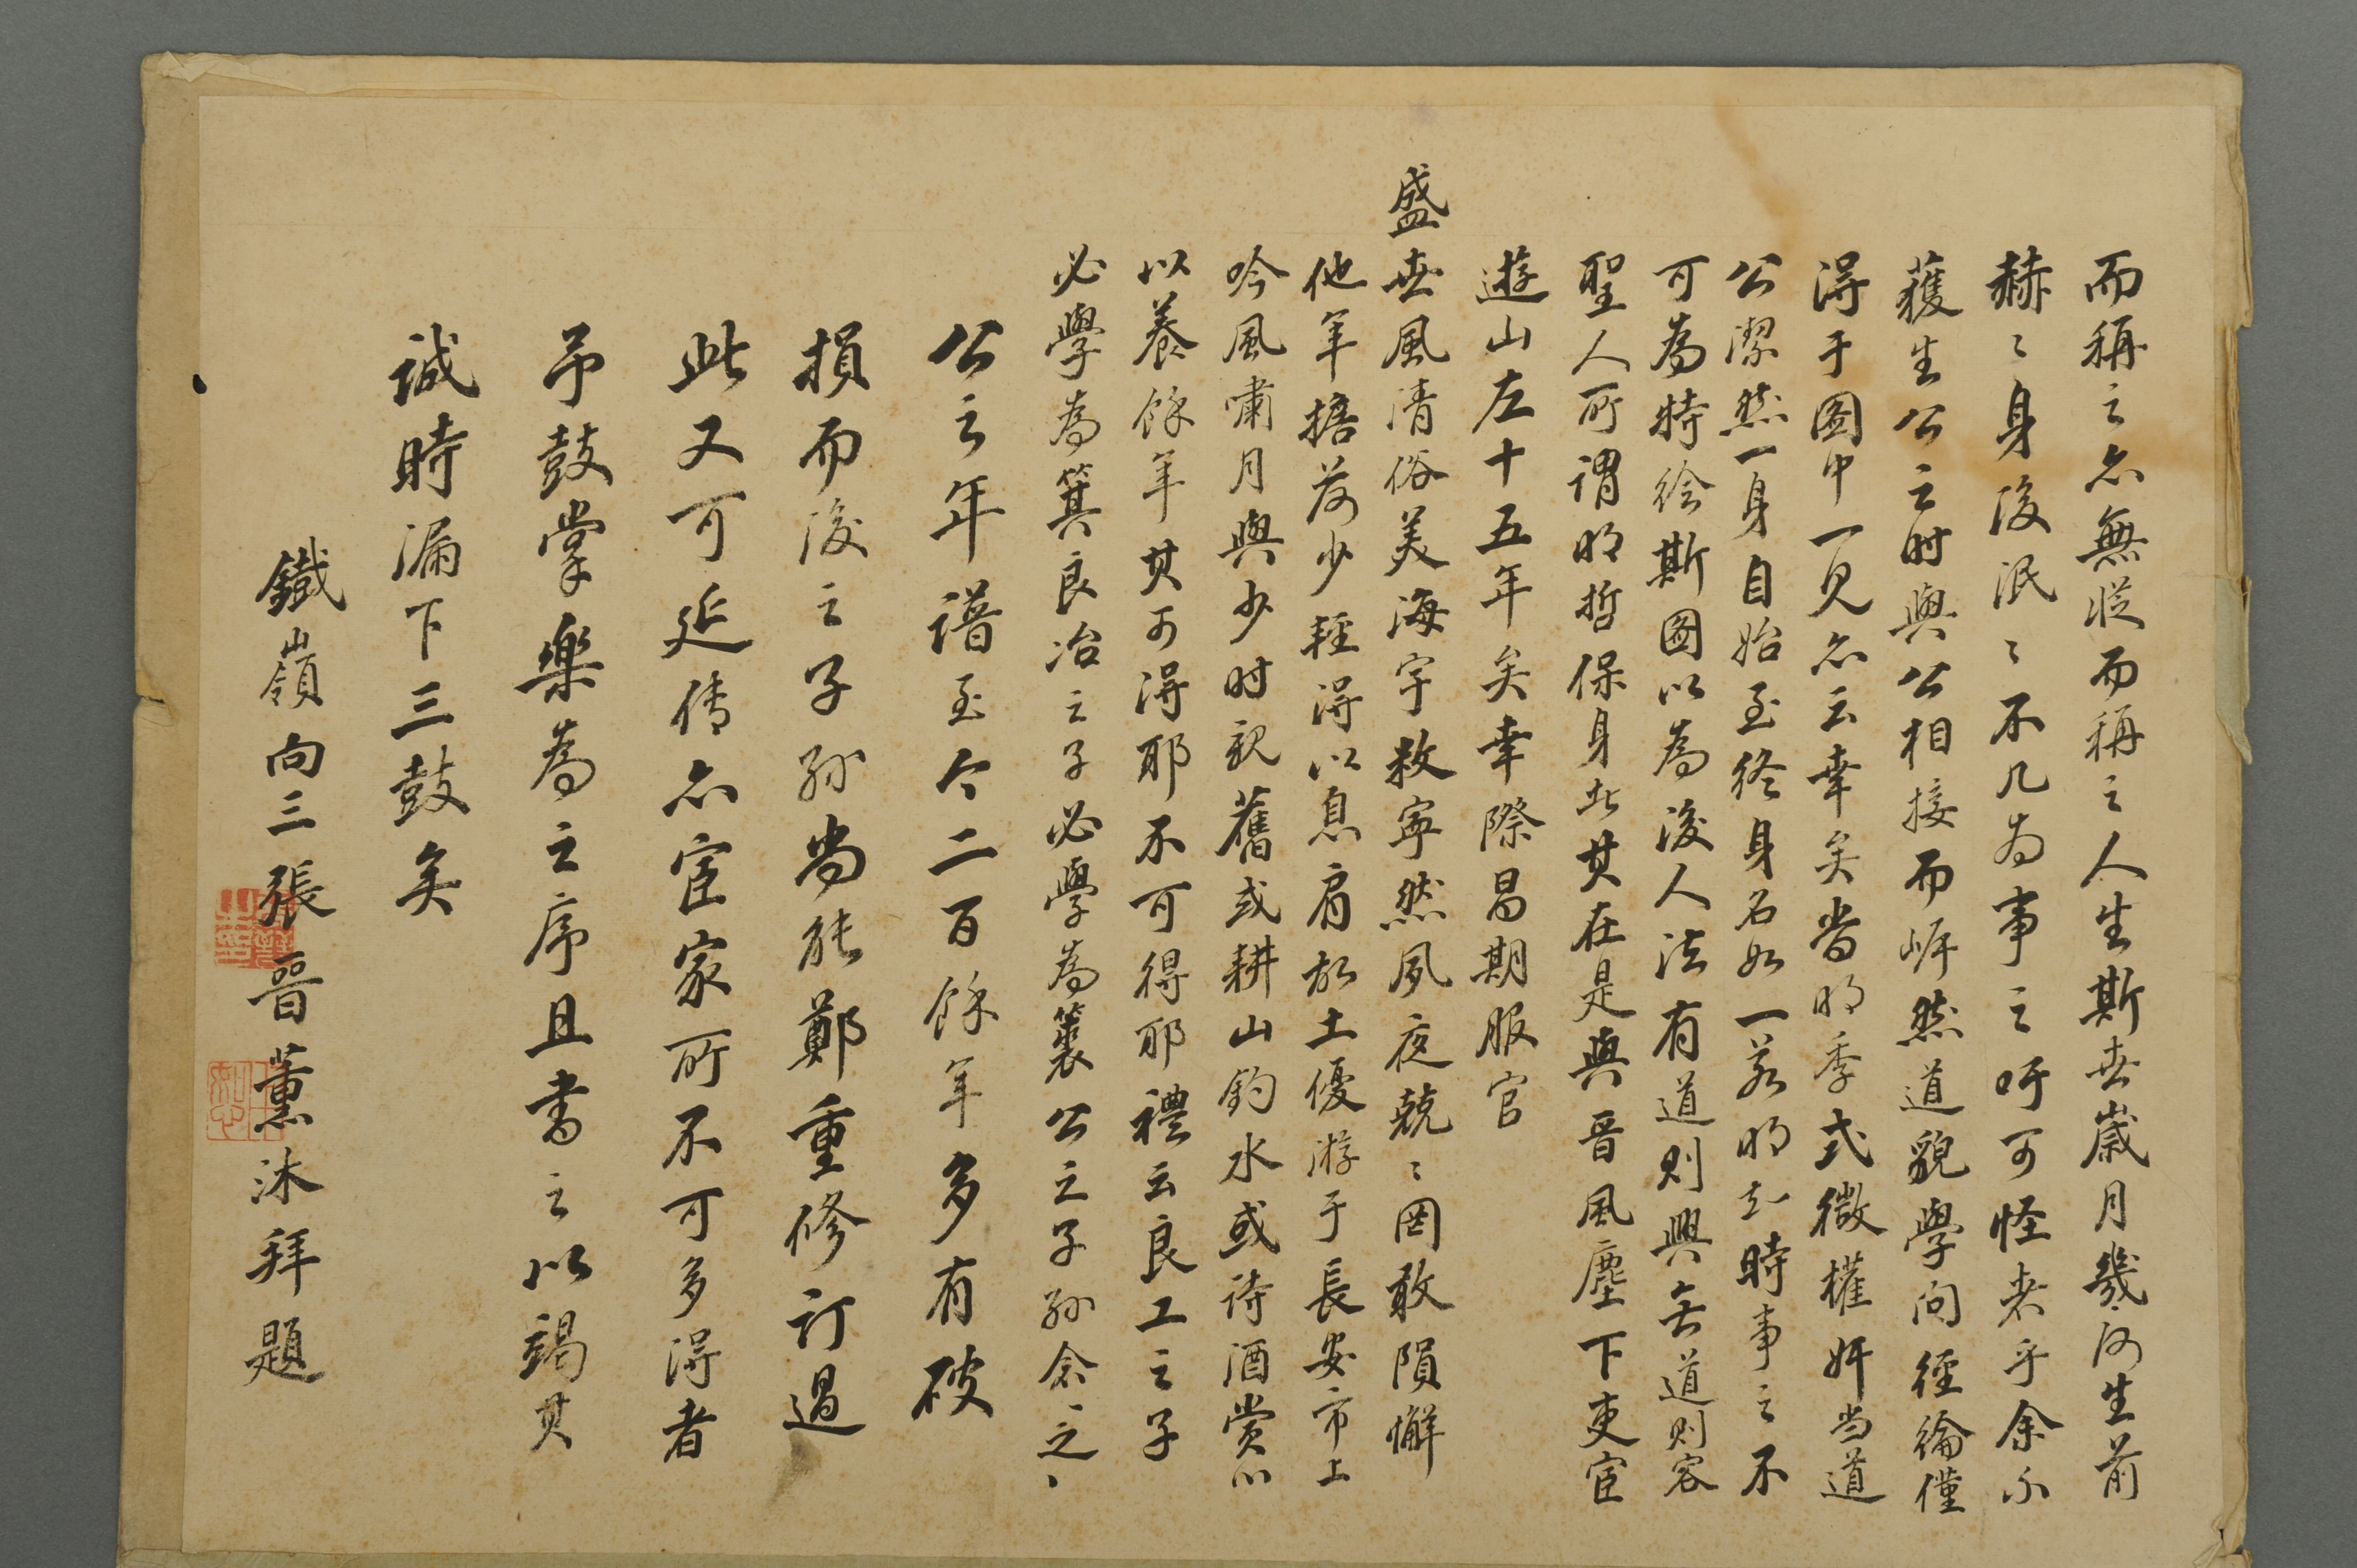 而稱之亦無從而稱之人生斯世歲月幾何生前
赫〻身後泯〻不几為事之吁可怪者乎余不
獲生公之时與公相接而岸然道貌學问經綸僅
得于图中一見亦云幸矣當明季式微權奸当道
公潔然一身自始至終身名如一若明知時事之不
可為特繪斯圖以為後人法有道則興無道則容
聖人所謂明哲保身者其在是與晉風塵下吏宦
遊山左十五年矣幸際昌期服官
盛世風清俗美海宇敉寧然夙夜兢〻罔敢隕懈
他年擔荷少輕得以息肩故土優游于長安市上
吟風嘯月與少时親舊或耕山釣水或诗酒赏心
以養餘年其可得耶不可得耶禮云良工之子
必學為箕良冶之子必學為裘公之子孫念之、
公之年譜至今二百餘年多有破
損而後之子孫尚能鄭重修訂過
此又可延传亦宦家所不可多得者
予鼓掌樂為之序且書之以竭其
誠時漏下三鼓矣
鐵嶺向三張晉薰沐拜題